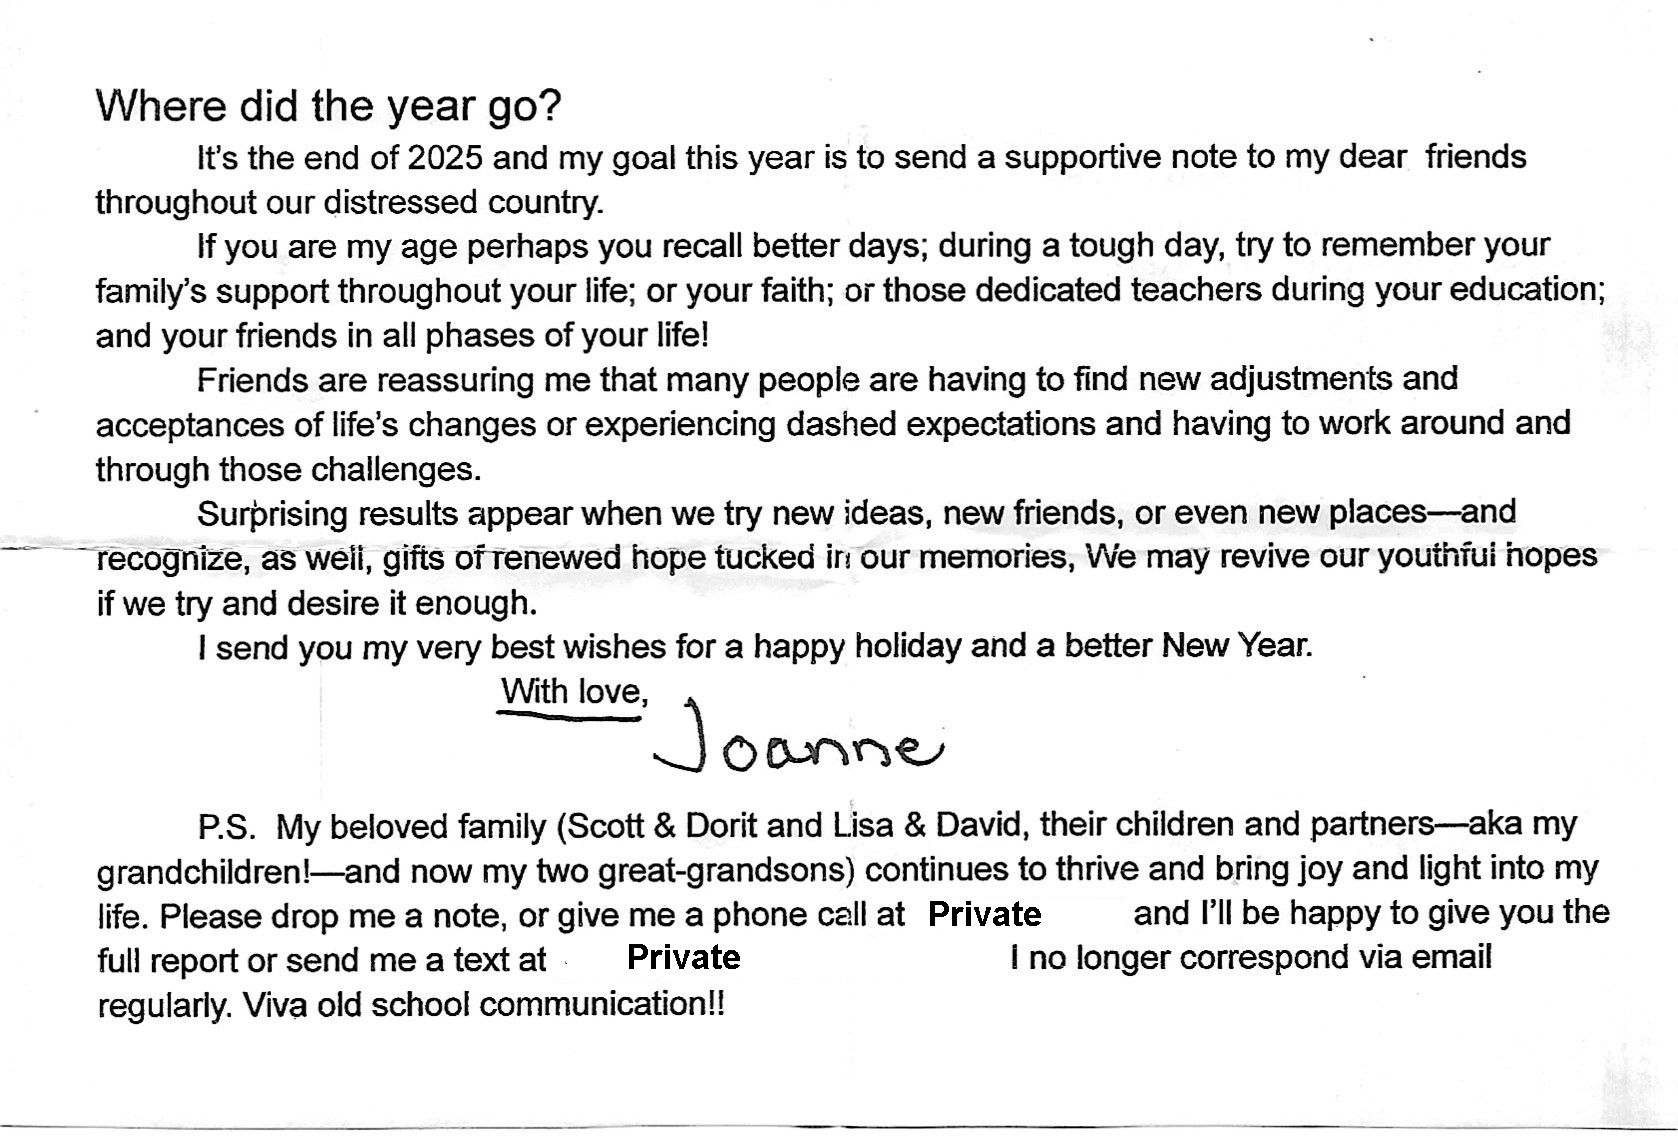 Where did the year go?
It's the end of 2025 and my goal this year is to send a supportive note to my dear friends
throughout our distressed country.
If you are my age perhaps you recall better days; during a tough day, try to remember your
family's support throughout your life; or your faith; or those dedicated teachers during your education;
and your friends in all phases of your life!
Friends are reassuring me that many people are having to find new adjustments and
acceptances of life's changes or experiencing dashed expectations and having to work around and
through those challenges.
Surprising results appear when we try new ideas, new friends, or even new places—and
recognize, as well, gifts of renewed hope tucked in our memories, We may revive our youthful hopes
if we try and desire it enough.
I send you my very best wishes for a happy holiday and a better New Year.
With love,
Joanne
P.S. My beloved family (Scott & Dorit and Lisa & David, their children and partners—aka my
grandchildren!—and now my two great-grandsons) continues to thrive and bring joy and light into my
life. Please drop me a note, or give me a phone call at Private and I'll be happy to give you the
full report or send me a text at Private I no longer correspond via email
regularly. Viva old school communication!!